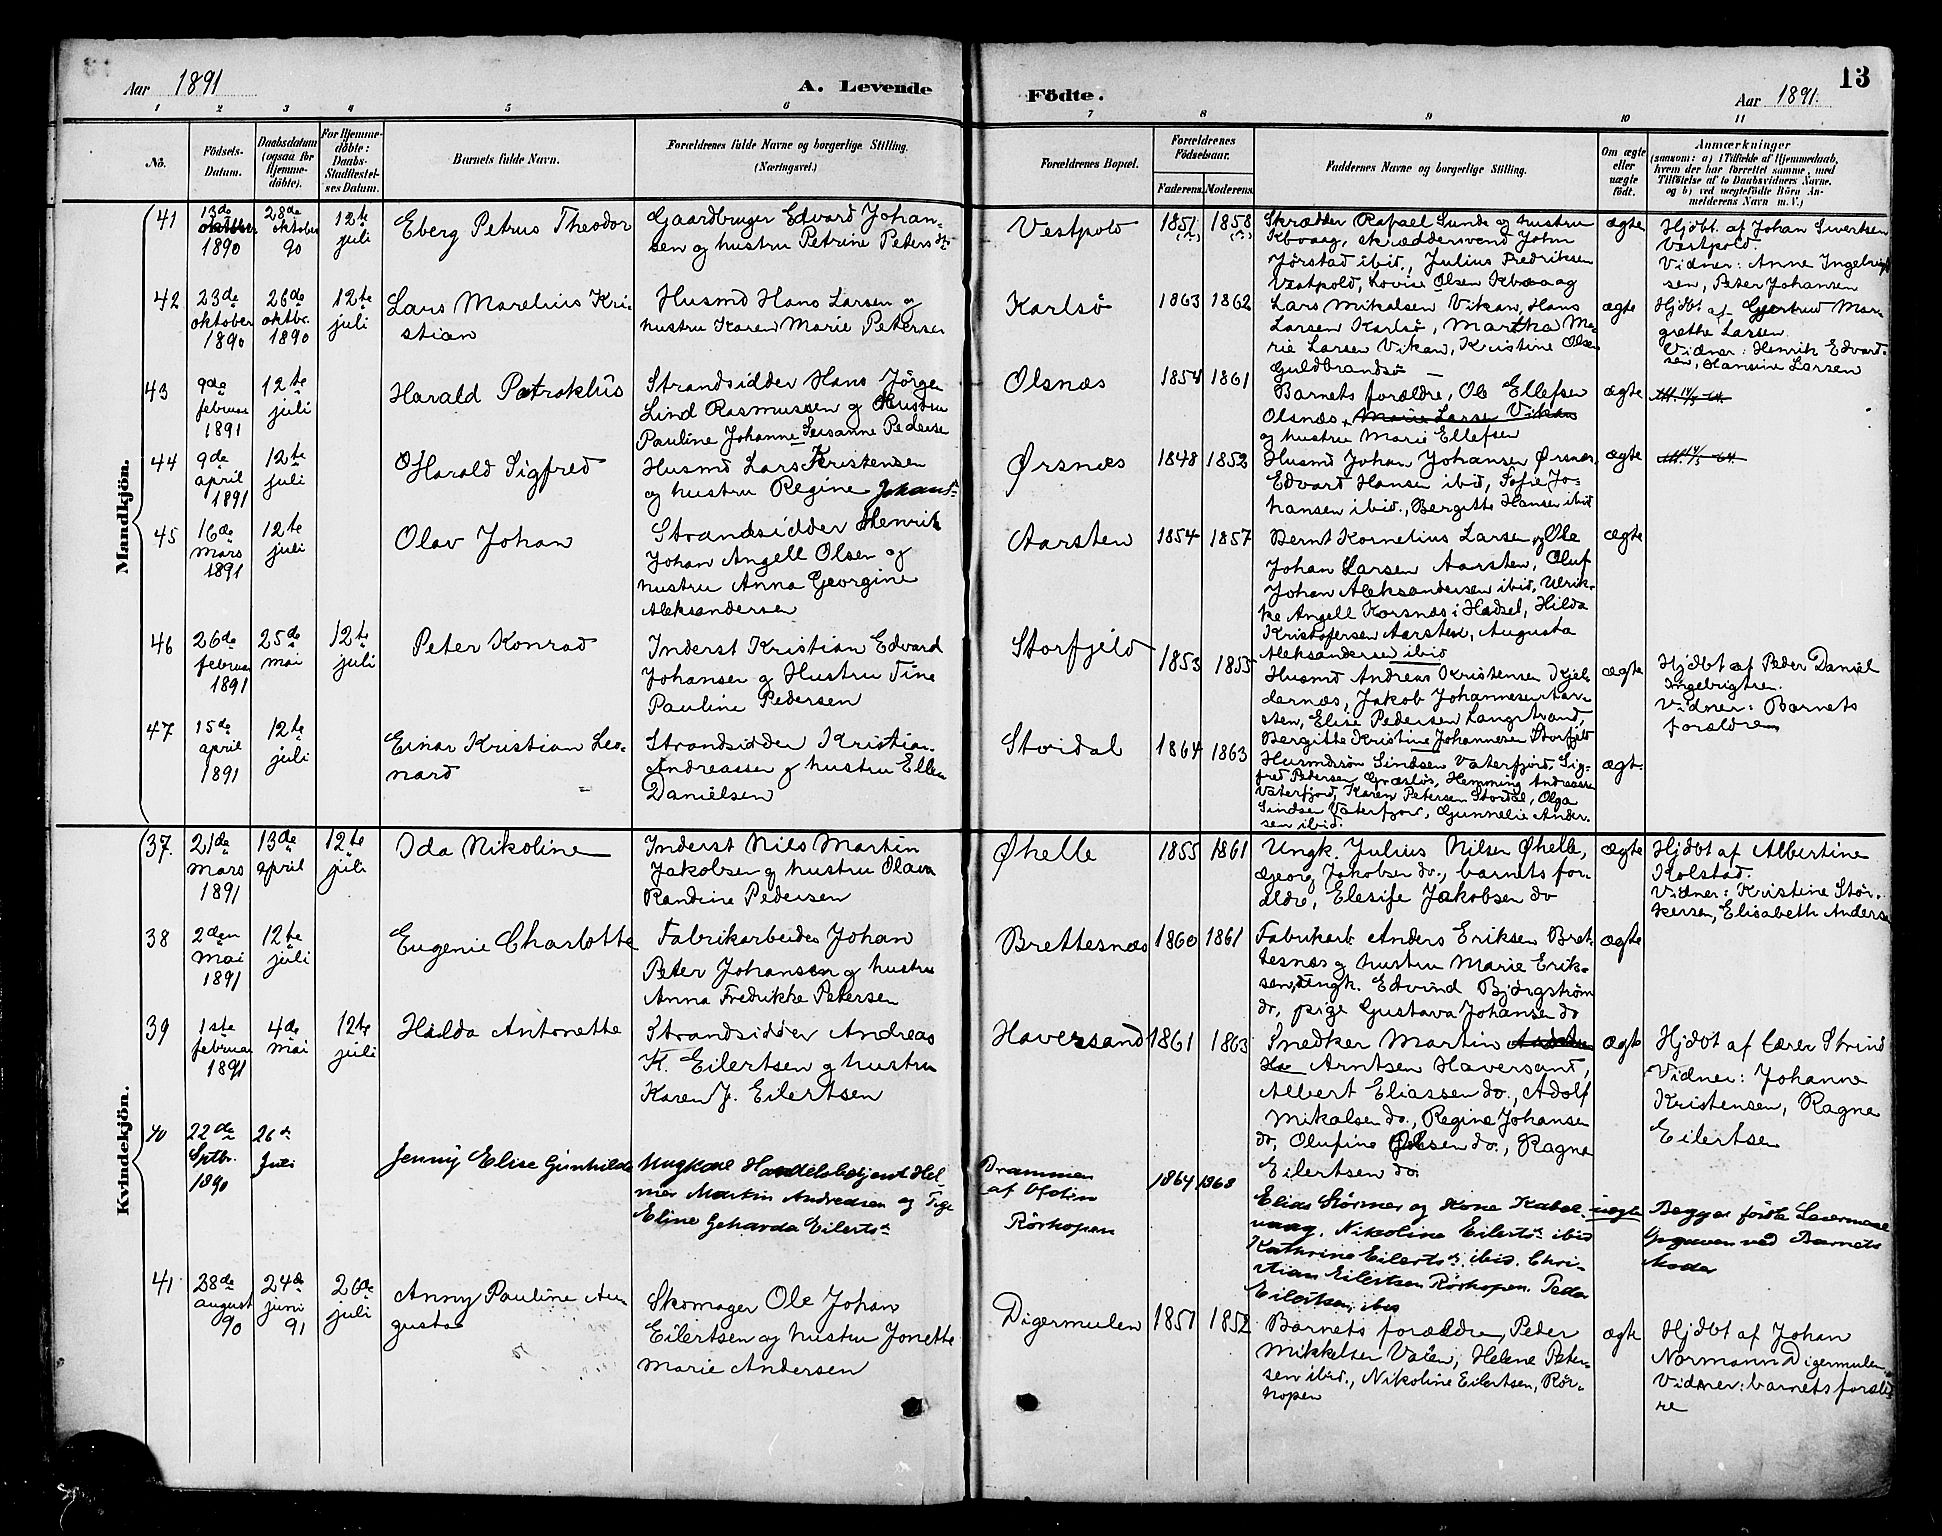 13
Aar 1891
A. Levende
Födte.
Aar 1891.
1 2 3 4 5 6 7 8 9 10 11
No.
Födsels-
Datum.
Daabsdatum
(ogsaa for
Hjemme-
döbte).
For Hjemme-
döbte:
Daabs-
Stadfæstel-
ses Datum.
Barnets fulde Navn.
Forældrenes fulde Navne og borgerlige Stilling.
(Næringsvei.)
Forældrenes Bopæl.
Forældrenes
Födselsaar.
Faderens. Moderens.
Faddernes Navne og borgerlige Stilling.
Om ægte
eller
uægte
födt.
Anmærkninger
(saasom: a) i Tilfælde af Hjemmedaab,
hvem der har forrettet samme, med
Tilföielse af to Daabsvidners Navne,
og b) ved uægtefödte Börn An-
melderens Navn m. V.)
Mandkjön.
41
13de
oktober
1890
28de
oktober
90
12te
juli
Eberg Petrus Theodor
Gaardbruger Edvard Johan-
sen og hustru Petrine Peters dtr
Vestpold
1851 1858
Skrædder Rafael Sunde og hustru
Kvaag, skræddersvend John
Jörstad ibid., Julius Fredriksen
Vestpold, Lovise Olsen Kvaag
ægte
Hjdbt. af Johan Sivertsen
Vestpold.
Vidner: Anne Ingebrigt-
sen, Peter Johansen
42
23de
oktober
1890
26de
oktbr.
1890
12te
juli
Lars Marelius Kri-
stian
Husmd Hans Larsen og
hustru Karen Marie Petersen
Karlsö
1863 1862
Lars Mikalsen Vikan, Hans
Larsen Karlsö, Martha Ma-
rie Larsen Vikan, Kristine Olsen
Guldbrandsö
ægte
Hjdbt. af Gjertrud Mar-
grethe Larsen.
Vidner: Henrik Edvard-
sen, Hansine Larsen
43
9de
februar
1891
12te
juli
Harald Patroklus
Strandsidder Hans Jörgen
Lind Rasmussen og Hustru
Pauline Johanne Susanne Pedersen
Olsnæs
1854 1861
Barnets forældre, Ole Ellefsen
Olsnæs, Marie Larsen Vikan
og hustru Marie Ellefsen
ægte
44
9de
april
1891
12te
juli
Harald Sigfred
Husmd Lars Kristensen
og hustru Regine Johansd.
Ørsnæs
1848 1852
Husmd Johan Johansen Ørsnæs,
Edvard Hansen ibid, Sofie Jo-
hansen ibid., Bergitte Hansen ibid
ægte
45
16de
mars
1891
12te
juli
Olav Johan
Strandsidder Henrik
Johan Angell Olsen og
hustru Anna Georgine
Aleksandersen
Aarsten
1854 1857
Bernt Kornelius Larsen, Ole
Johan Larsen Aarsten, Oluf
Johan Aleksandersen ibid, Ulrik-
ke Angell Korsnæs i Hadsel, Hilda
Kristofersen Aarsten, Augusta
Aleksandersen ibid
ægte
46
26de
februar
1891
25de
mai
12te
juli
Peter Konrad
Inderst Kristian Edvard
Johansen og Hustru Tine
Pauline Pedersen
Storfjeld
1853 1855
Husmd Andreas Kristensen Kjel-
dernæs, Jakob Johannesen Aar-
sten, Elise Pedersen Langstrand,
Bergitte Kristine Johannesen Storfjeld
ægte
Hjdbt af Peder Daniel
Ingebrigtsen.
Vidner: Barnets
forældre
47
15de
april
1891
12te
juli
Einar Kristian Leo-
nard
Strandsidder Kristian
Andreassen og hustru Ellen
Danielsen
Stoidal
1864 1863
Husmdssön Sindsen Vaterfjord, Sig-
fred Petersen Græslös, Hemming Andreassen
Vaterfjord, Karen Petersen Stoidal, Olga
Sindsen Vaterfjord, Gunnelie Ander-
sen ibid.
ægt.
Kvindekjön.
37.
21de
mars
1891
13de
april
12te
juli
Ida Nikoline
Inderst Nils Martin
Jakobsen og hustru Olava
Randine Pedersen
Øhelle
1855 1861
Ungk. Julius Nilsen Øhelle,
Georg Jakobsen do., barnets for-
ældre, Elesife Jakobsen do
ægte
Hjdbt af Albertine
Kolstad.
Vidner: Kristine Stör-
kersen, Elisabeth Andersen
38
2den
mai
1891
12te
juli
Eugenie Charlotte
Fabrikarbeider Johan
Peter Johansen og hustru
Anna Fredrikke Petersen
Brettesnæs
1860 1861
Fabrikarb. Anders Eriksen Bret-
tesnæs og hustru Marie Erik-
sen, ungk. Edvind Bjørgstrøm
do, pige Gustava Johansen do
ægte
39
1ste
februar
1891
4de
mai
12te
juli
Hilda Antonette
Strandsidder Andreas
K. Eilertsen og hustru
Karen J. Eilertsen
Haversand
1861 1863
Snedker Martin
Arntsen Haversand,
Albert Eliassen do., Adolf
Mikalsen do., Regine Johansen
do, Olufine Olsen do., Ragna
Eilertsen do.
ægte
Hjdbt af lærer Strind
Vidner: Johanne
Kristensen, Ragna
Eilertsen
40
22de
Sptbr.
1890
26de
Juli
Jenny Elise Gunhilda
Ungkarl Handelsbetjent Hel-
mer Martin Andreasen og Pige
Eline Geharda Eilertsd.
Drammen
af Ofoten
Rörhopen
1864 1868
Elias Störmer og Kone Kabel-
vaag. Nikoline Eilertsd. ibid
Kathrine Eilertsd. ibid. Chri-
stian Eilertsen Rörhopen. Peder
Eilertsen ibid
uægte
Begges förste Leiermaal
Opgaven ved Barnets
Moder
41
28de
august
90
24de
juni
91
26de
juli
Anny Pauline Au-
gusta
Skomager Ole Johan
Eilertsen og hustru Jonette
Marie Andersen
Digermulen
1851 1852
Barnets forældre, Peder
Mikkelsen Valen, Helene Peter-
sen ibid., Nikoline Eilertsen, Rör-
hopen
ægte
Hjdbt af Johan
Normann Digermulen
Vidner: barnets foræld-
re